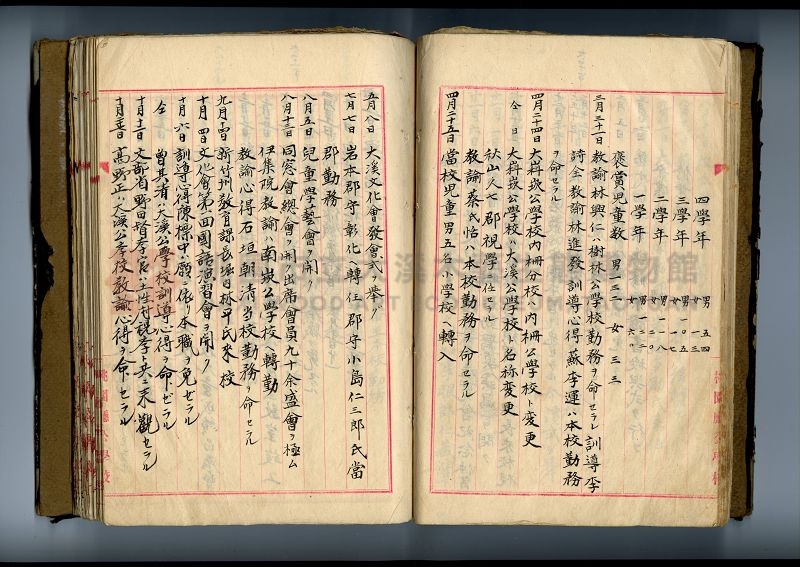 四學年 男 五四 女 一三
三學年 男 一〇五 女 一七
二學年 男 一一八 女
一學年 男 一三二 女 六〇
褒賞兒童數 男 一三一 女 三三
三月三十一日 教諭林興仁ハ樹林公學校勤務ヲ命セラレ訓導李
詩金教諭林進發訓導心得蘇李運ハ本校勤務
ヲ命セラル
四月二十四日 大嵙崁公學校內柵分校ハ內柵公學校ト変更
仝 日 大嵙崁公學校ハ大溪公學校ト名称変更
秋山久七郡視學ニ任セラル
教諭蔡氏怡ハ本校勤務ヲ命セラル
四月二十五日 當校兒童男五名小學校ヘ轉入
五月八日 大溪文化會發會式ヲ舉ク
七月七日 岩本郡守彰化ヘ轉任郡守小島仁三郎氏當
郡勤務
八月五日 兒童學藝會ヲ開ク
八月十三日 同窓會總會ヲ開ク出席會員九十余盛會ヲ極ム
伊集院教諭ハ南崁公學校ヘ轉勤
教諭心得石垣朝清当校勤務ヲ命セラル
九月十四日 新竹州教育課長堀田林平氏來校
十月四日 文化會第一回國語演習會ヲ開ク
十月六日 訓導心得陳樑中ハ願ニ依リ本職ヲ免セラル
仝 曾其清ハ大溪公學校訓導心得ヲ命ゼラル
十月十三日 文部省野田督学官ハ土性村視学ト共ニ來觀セラル
十月二十五日 高野正ハ大溪公学校教諭心得ヲ命セラル
桃園廳公學校